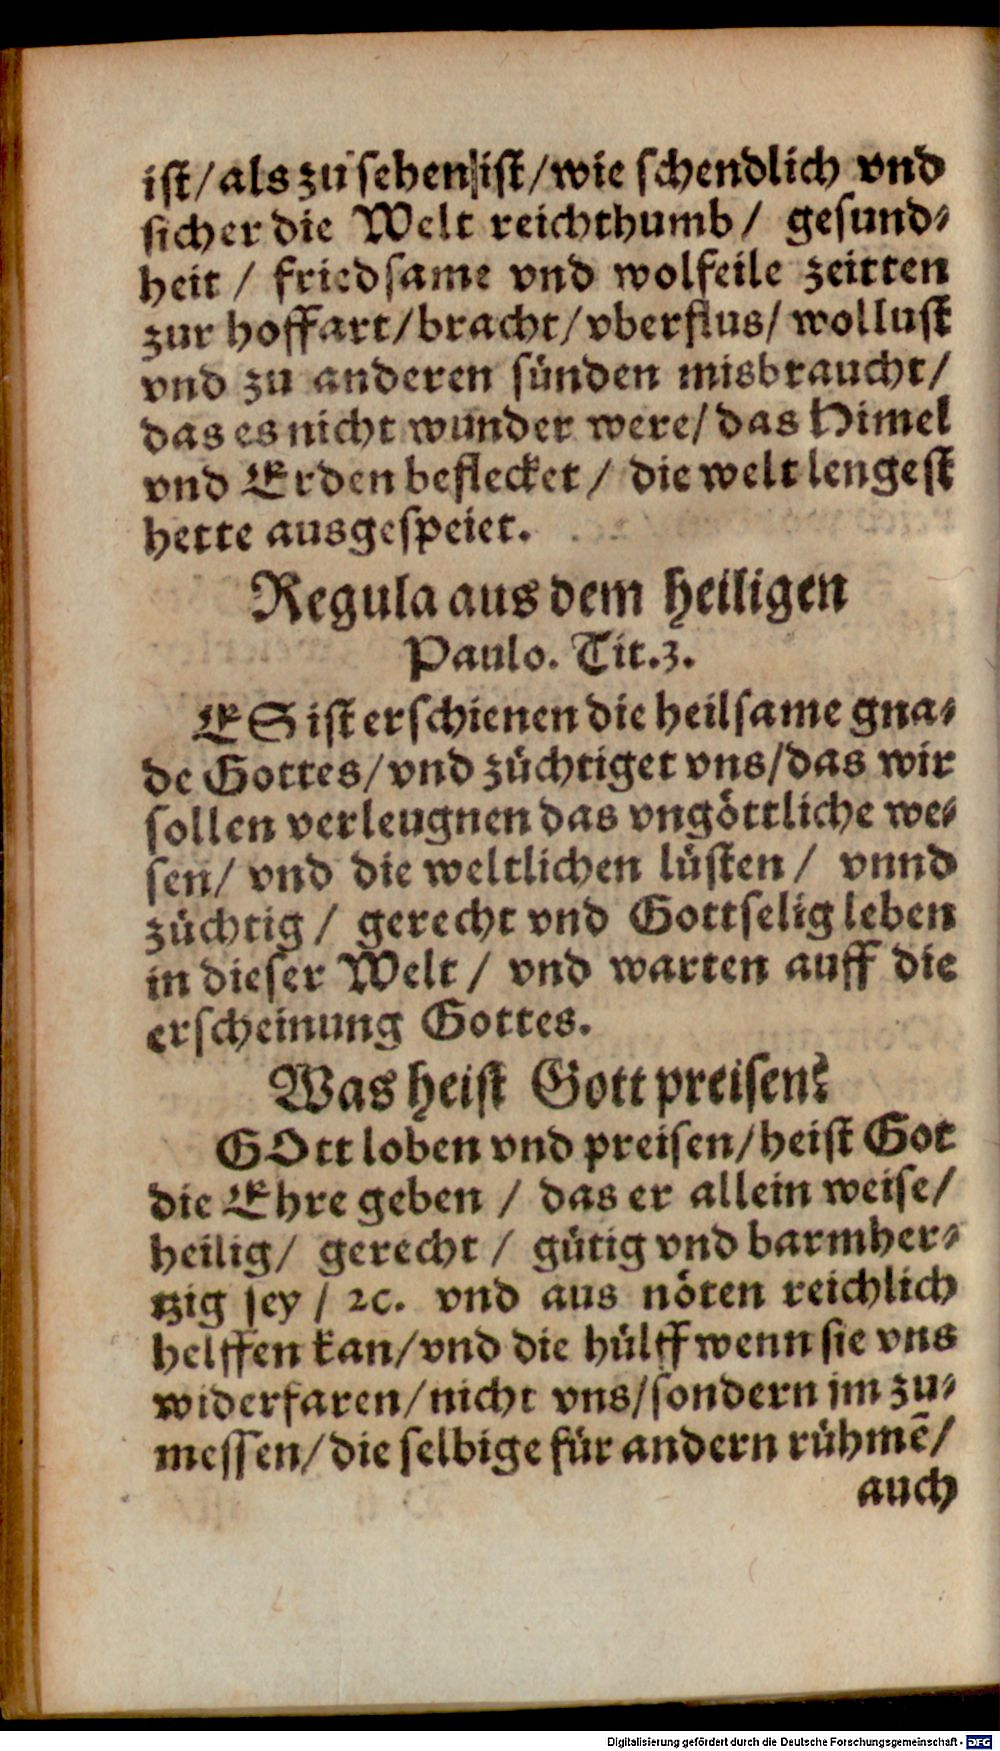 ist/als zu sehen ist/wie schendlich vnd
sicher die Welt reichthumb/ gesund⸗
heit / friedsame vnd wolfeile zeitten
zur hoffart/bracht/vberflus/wollust
vnd zu anderen sünden misbraucht/
das es nicht wunder were/das Himel
vnd Erden beflecket / die welt lengest
hette ausgespeiet.
Regula aus dem heiligen
Paulo. Tit.3.
ES ist erschienen die heilsame gna⸗
de Gottes/vnd züchtiget vns/das wir
sollen verleugnen das vngöttliche we⸗
sen/ vnd die weltlichen lüsten / vnnd
züchtig / gerecht vnd Gottselig leben
in dieser Welt / vnd warten auff die
erscheinung Gottes.
Was heist Gott preisen?
GOtt loben vnd preisen/heist Got
die Ehre geben / das er allein weise/
heilig/ gerecht / gütig vnd barmher⸗
tzig sey / ꝛc. vnd aus nöten reichlich
helffen kan/vnd die hülff wenn sie vns
widerfaren/nicht vns/sondern jm zu⸗
messen/die selbige für andern rühmē/
auch
Digitalisierung gefördert durch die Deutsche Forschungsgemeinschaft - DFG